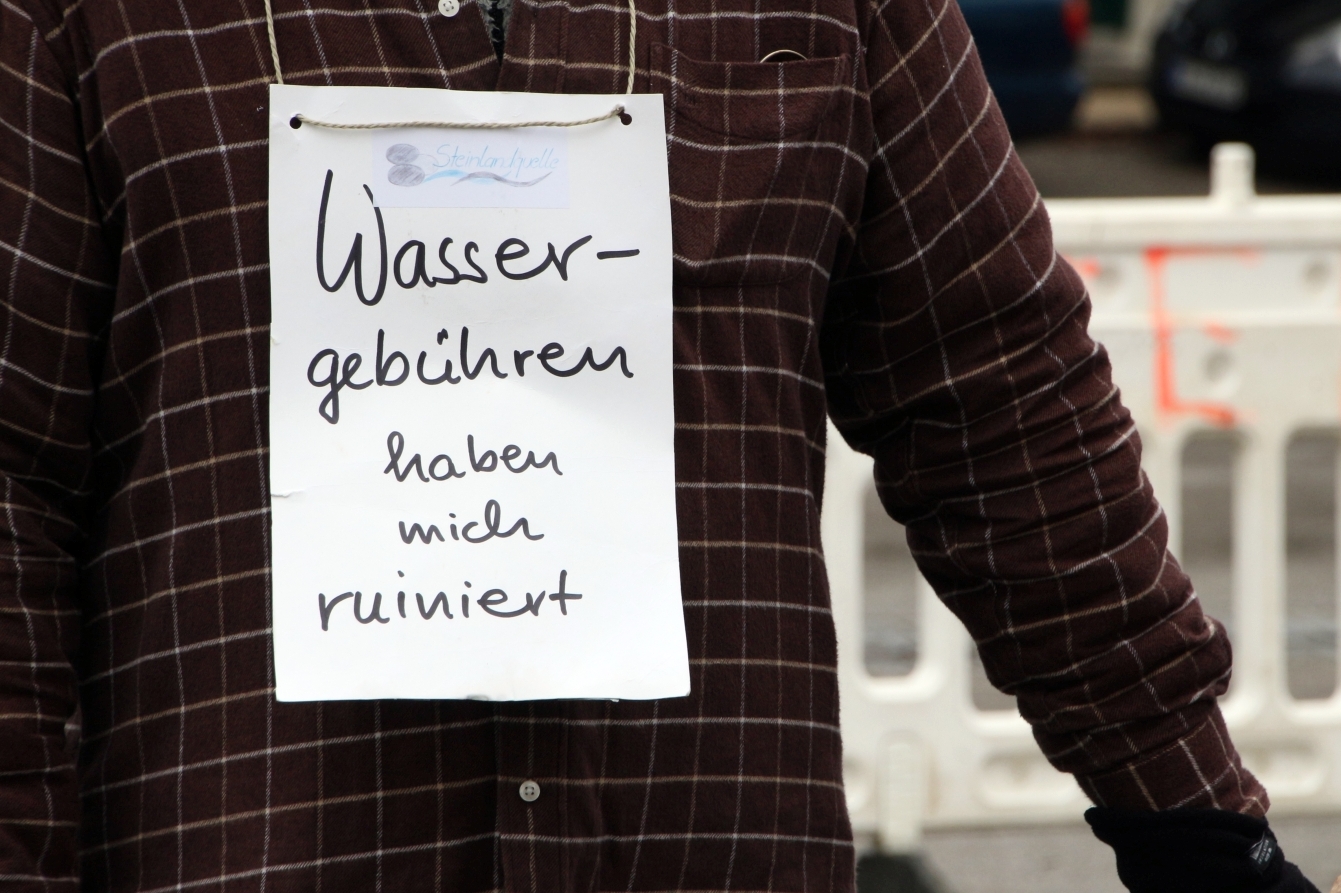 Steinlachquelle
Wasser-
gebühren
haben
mich
ruiniert